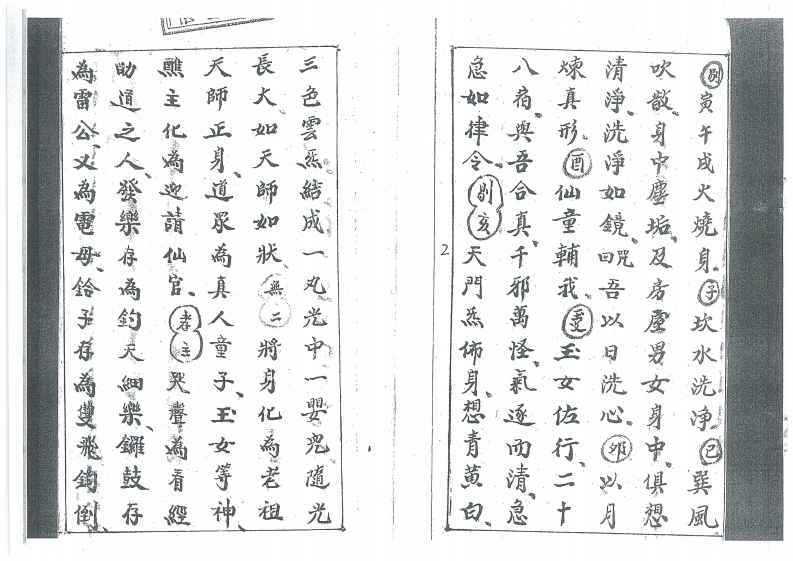 剔寅午戍火燒身、子坎水洗淨、己巽風
吹散、身中塵垢、及房屋男女身中、俱想
清淨洗淨如鏡、咒曰吾以日洗心、卯以月
煉真形、酉仙童輔我、玉女佐行、二十
八宿、與吾合真、千邪萬怪、氣逐而清、急
急如律令、剔亥天門炁佈身、想青黃白、
2
三色雲炁結成一丸光中一嬰兒隨光
長大如天師如狀、無二將身化為老祖
天師正身、道眾為真人童子、玉女等神、
醮主化為迎請仙官、孝主哭聲為看經
助道之人、發樂存為鈞天細樂、鑼鼓存
為雷公、又為電母、鈴子存為雙飛鈞倒、